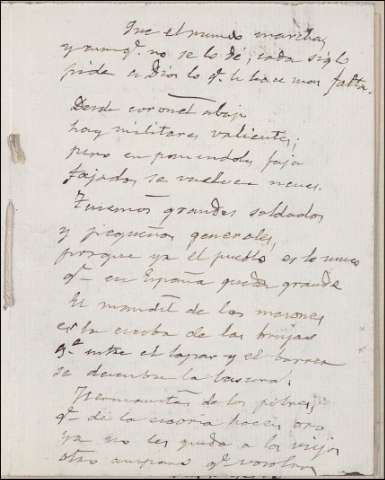 Que el mundo marcha,
y aunq.e no se lo dé, cada siglo
pide a Dios lo q.e le hace mas falta.
Desde coronel abajo
hay militares valientes;
pero en poniendoles faja
fajados se vuelven nenes.
Tenemos grandes soldados
y pequeños generales,
porque ya el pueblo es lo unico
q.e en España queda grande
El mandil de los masones
es la escoba de las brujas
q.e entre el tapar y el barrer
se descubre la basura.
Hermanitas de los pobres,
q.e de la escoria haceis oro
ya no les queda a los viejos
otro amparo q.e vosotras